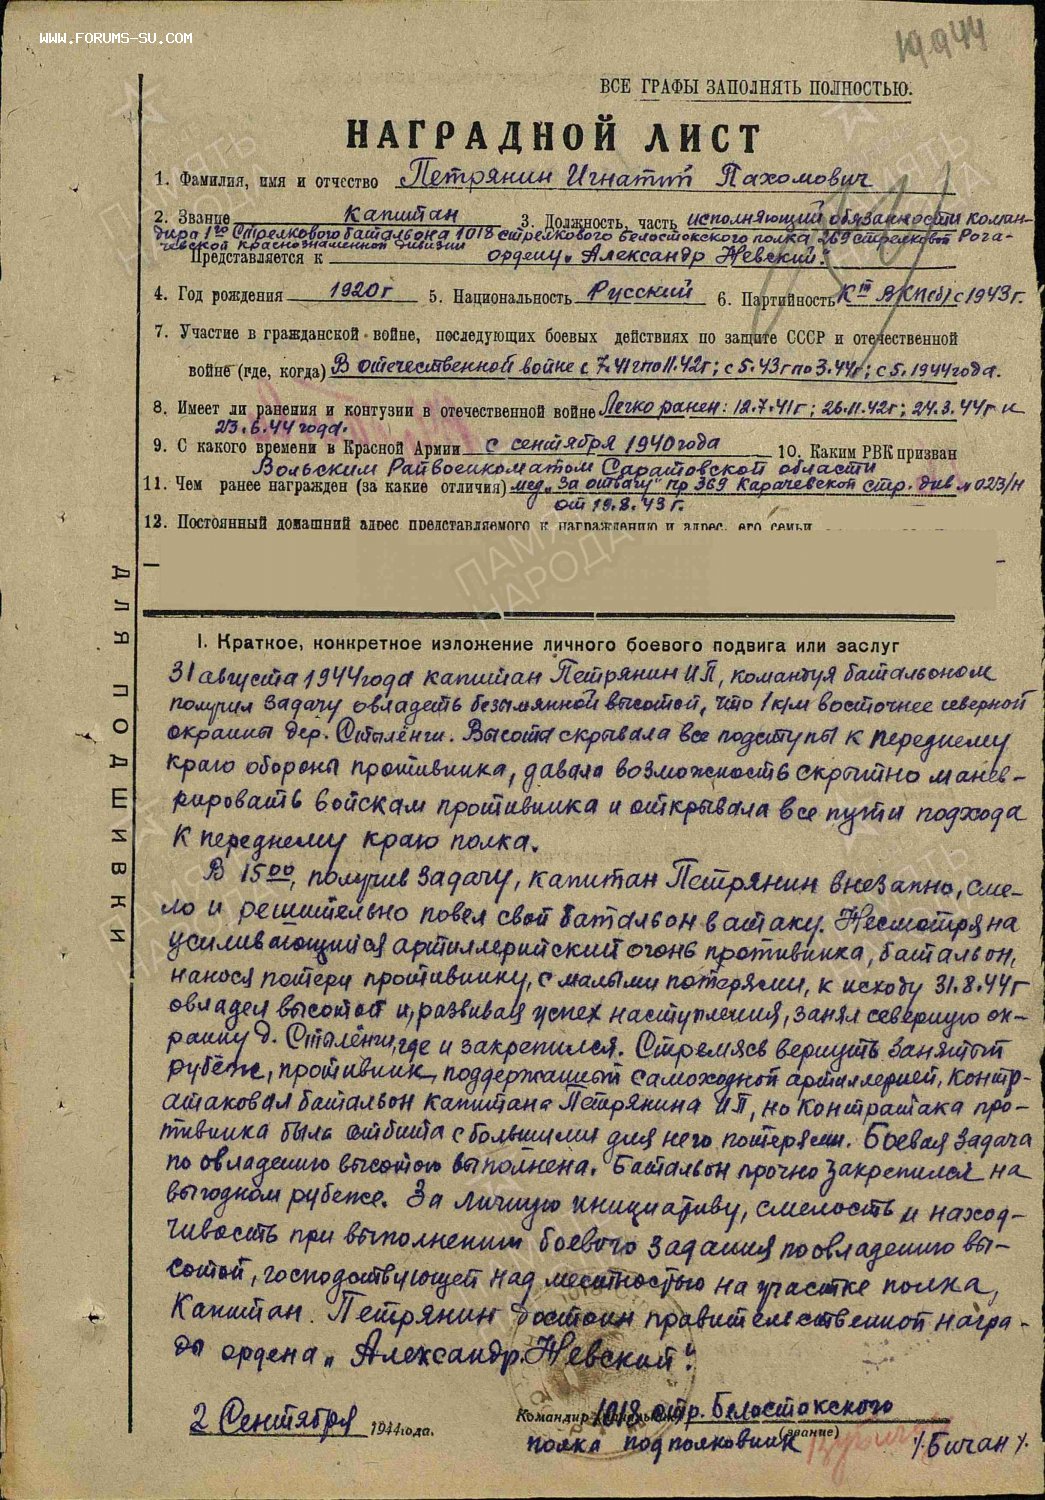 WWW.FORUMS-SU.COM
19944
ВСЕ ГРАФЫ ЗАПОЛНЯТЬ ПОЛНОСТЬЮ.
НАГРАДНОЙ ЛИСТ
1. Фамилия, имя и отчество Петрянин Игнатий Пахомович
2. Звание капитан 3. Должность, часть исполняющий обязанности коман-
дира 1го стрелкового батальона 1018 стрелкового Белостокского полка 269 стрелковой Рога-
чевской краснознаменной дивизии
Представляется к ордену „Александр Невский".
4. Год рождения 1920г 5. Национальность Русский 6. Партийность К ВКП(б) с 1943г.
7. Участие в гражданской войне, последующих боевых действиях по защите СССР и отечественной
войне (где, когда) В отечественной войне с 7.41г по 11.42г; с 5.43г по 3.44г; с 5.1944 года.
8. Имеет ли ранения и контузии в отечественной войне Легко ранен: 12.7.41г; 26.11.42г; 24.3.44г и
23.6.44 года.
9. С какого времени в Красной Армии с сентября 1940 года 10. Каким РВК призван
Вольским Райвоенкоматом Саратовской области
11. Чем ранее награжден (за какие отличия) мед „За отвагу" пр 369 Карачевской стр. див. № 023/н
от 19.8.43г.
12. Постоянный домашний адрес представляемого к награждению и адрес его семьи
ДЛЯ ПОДШИВКИ
I. Краткое, конкретное изложение личного боевого подвига или заслуг
31 августа 1944 года капитан Петрянин И П, командуя батальоном
получил задачу овладеть безымянной высотой, что 1 к/м восточнее северной
окраины дер. Стылёнги. Высота скрывала все подступы к переднему
краю обороны противника, давала возможность скрытно манев-
рировать войскам противника и открывала все пути подхода
к переднему краю полка.
В 15 00, получив задачу, капитан Петрянин внезапно, сме-
ло и решительно повел свой батальон в атаку. Несмотря на
усиливающийся артиллерийский огонь противника, батальон,
нанося потери противнику, с малыми потерями, к исходу 31.8.44г
овладел высотой и, развивая успех наступления, занял северную ок-
раину д. Стылёнги, где и закрепился. Стремясь вернуть занятый
рубеж, противник, поддержанный самоходной артиллерией, контр-
атаковал батальон капитана Петрянина И П, но контратака про-
тивника была отбита с большими для него потерями. Боевая задача
по овладению высотою выполнена. Батальон прочно закрепился на
выгодном рубеже. За личную инициативу, смелость и наход-
чивость при выполнении боевого задания по овладению вы-
сотой, господствующей над местностью на участке полка,
Капитан Петрянин достоин правительственной награ-
ды ордена „Александр Невский".
2 Сентября 1944 года.
Командир 1018 стр. Белостокского
(звание)
полка подполковник /Бичан/.
ПАМЯТЬ НАРОДА